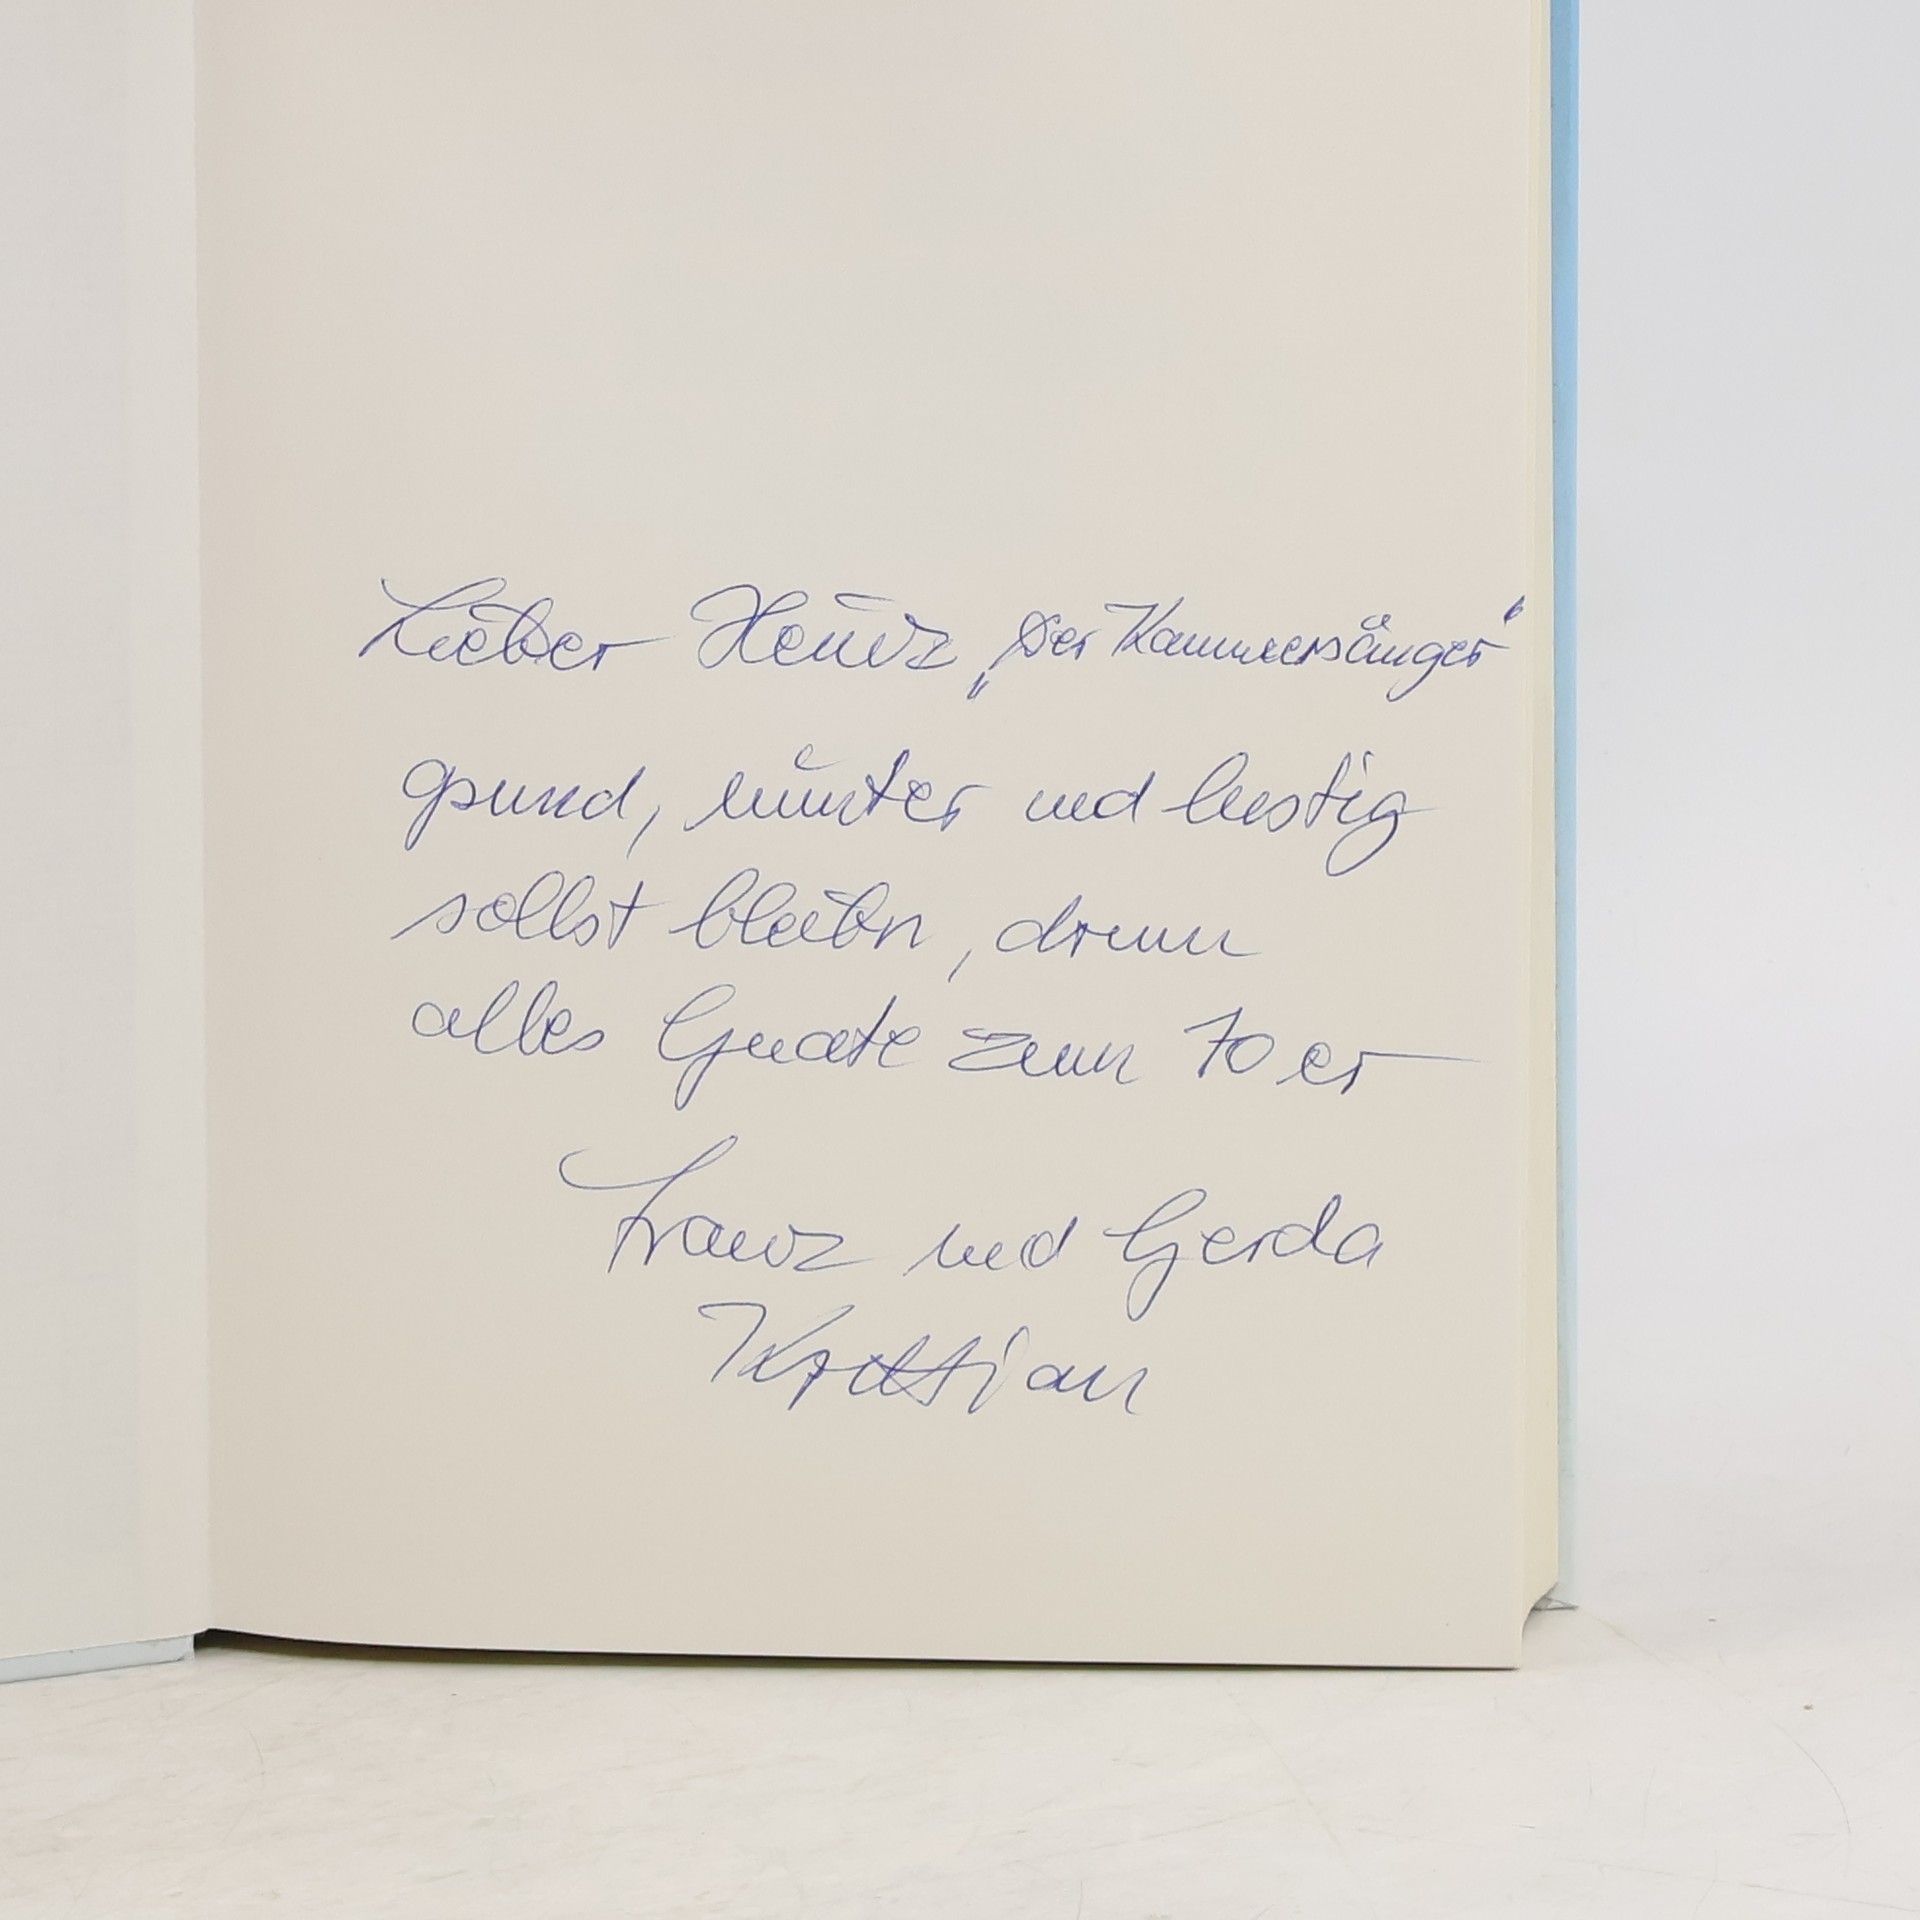 Lieber Heinz „Der Kammersänger“
gsund, munter und lustig
sollst bleibn, drum
alles Guate zum 70er
Franz und Gerda